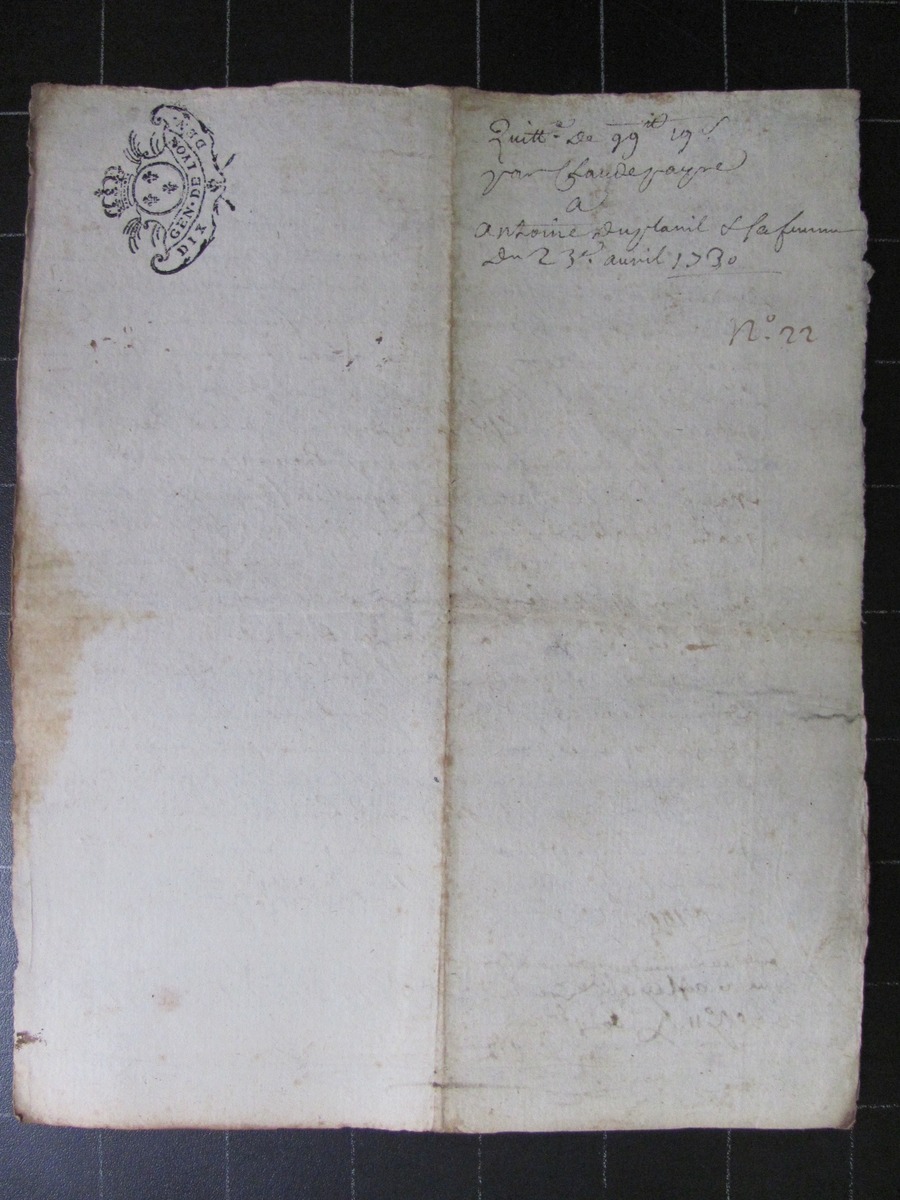 GEN·DE LYON
DIX DEN·
Quitt.e De 99 lt 19 s
par Claude payre
A
Antoine Duplanil & sa femme
Du 23e. avril 1730
N.o 22